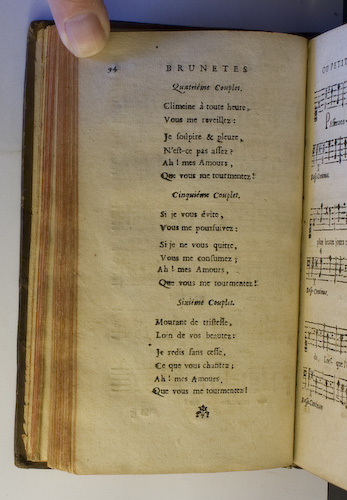 94 BRUNETES
Quatriéme Couplet.
Climeine à toute heure,
Vous me reveillez:
Je soûpire & pleure,
N'est-ce pas assez?
Ah! mes Amours,
Que vous me tourmentez!
Cinquiéme Couplet.
Si je vous évite,
Vous me poursuivez;
Si je ne vous quitte,
Vous me consumez;
Ah! mes Amours,
Que vous me tourmentez!
Sixiéme Couplet.
Mourant de tristesse,
Loin de vos beautez:
Je redis sans cesse,
Ce que vous chantez;
Ah! mes Amours,
Que vous me tourmentez!
OU PETIT
Basse-Continue.
Basse-Continue.
Basse-Continue.